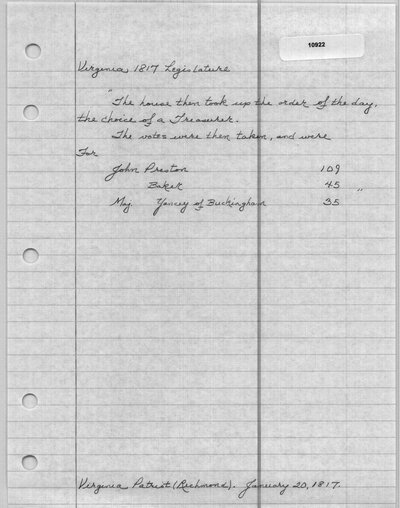 10922
Virginia 1817 Legislature
"The house then took up the order of the day,
the choice of a Treasurer.
The votes were then taken, and were
For
John Preston 109
Baker 45 "
Maj. Yancey of Buckingham 35
Virginia Patriot (Richmond). January 20, 1817.